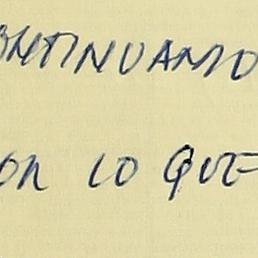 ONTINUANDO
OR LO QUE